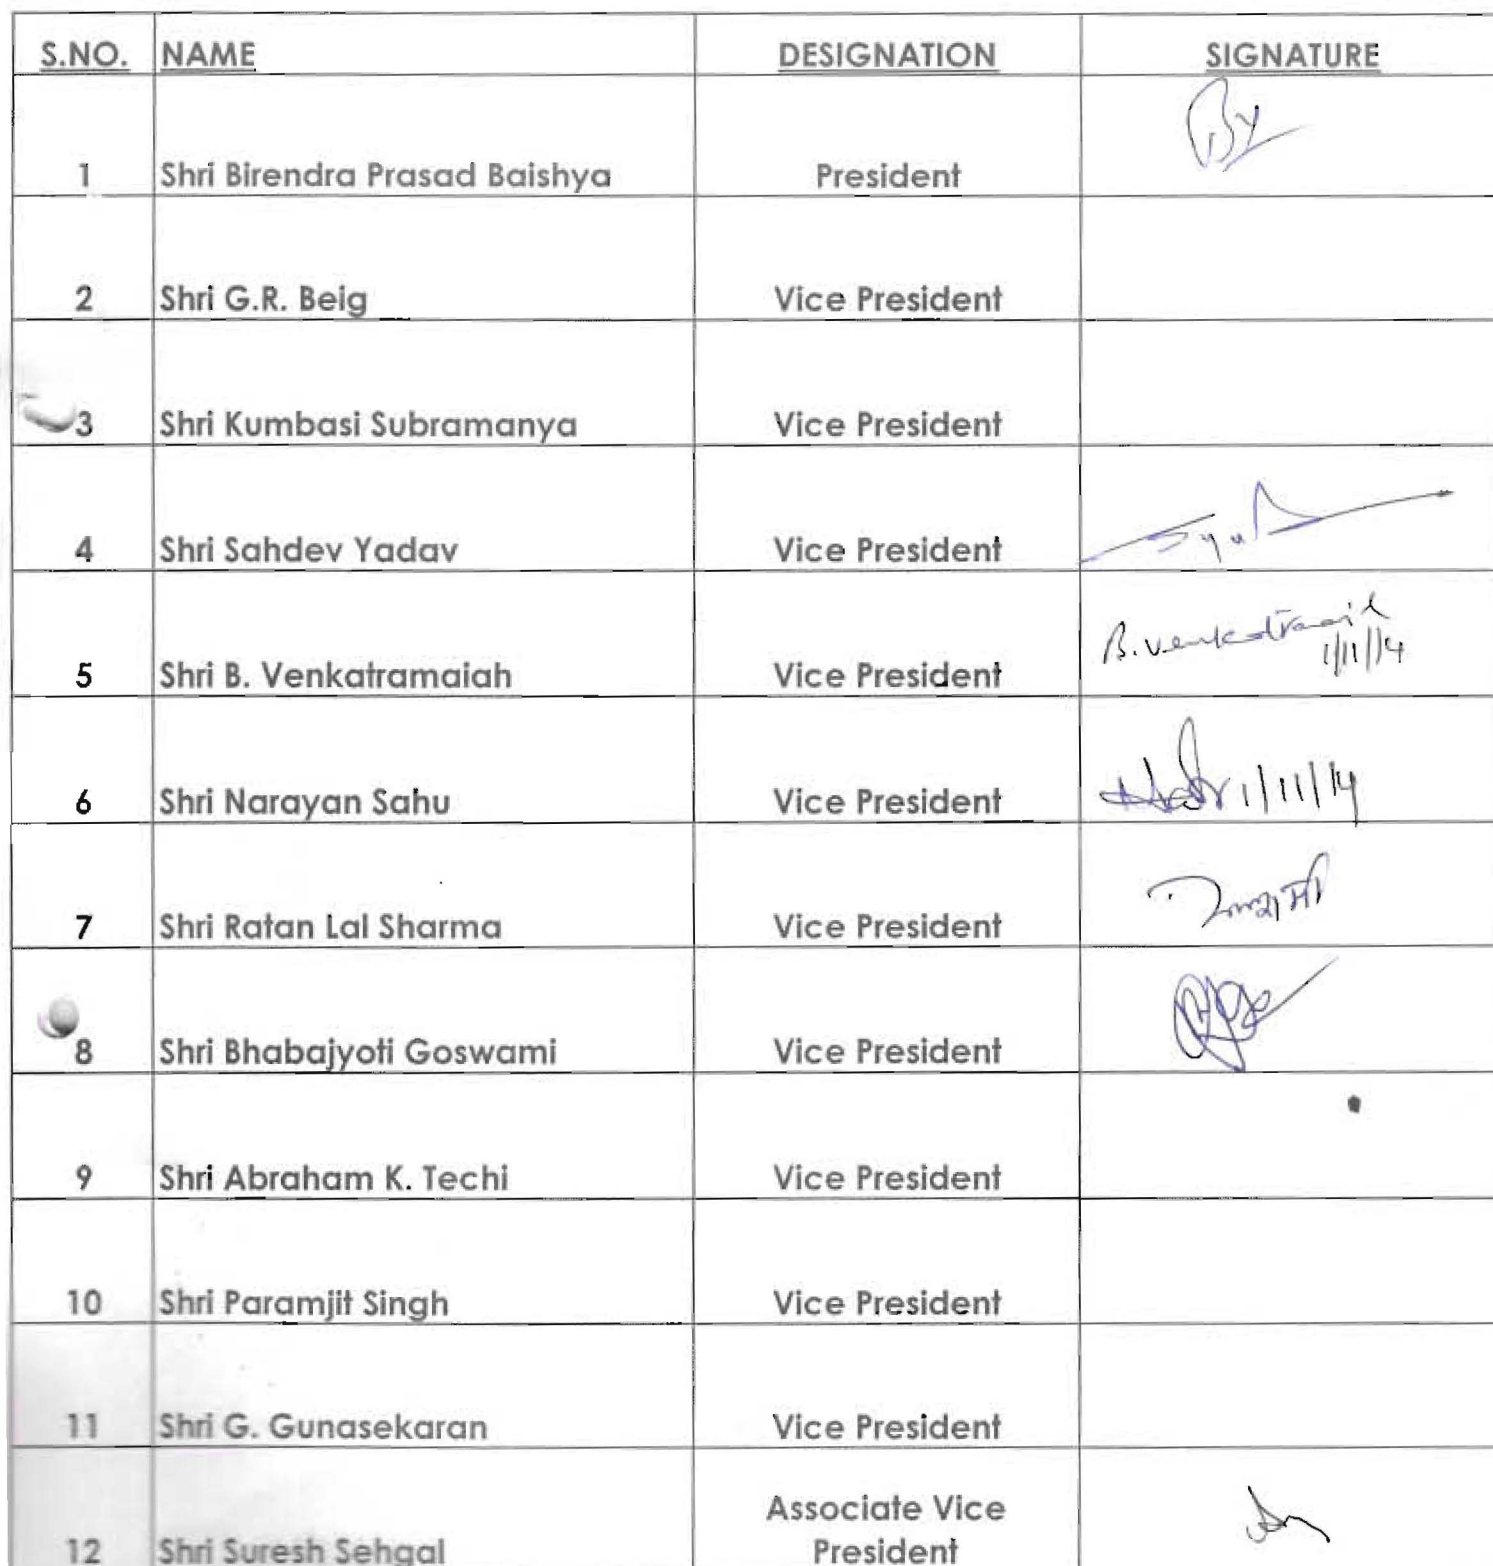 S.NO. NAME DESIGNATION SIGNATURE
1 Shri Birendra Prasad Baishya President
2 Shri G.R. Beig Vice President
3 Shri Kumbasi Subramanya Vice President
4 Shri Sahdev Yadav Vice President
5 Shri B. Venkatramaiah Vice President B. Venkatramaiah
1/11/14
6 Shri Narayan Sahu Vice President 1/11/14
7 Shri Ratan Lal Sharma Vice President
8 Shri Bhabajyoti Goswami Vice President
9 Shri Abraham K. Techi Vice President
10 Shri Paramjit Singh Vice President
11 Shri G. Gunasekaran Vice President
12 Shri Suresh Sehgal Associate Vice
President